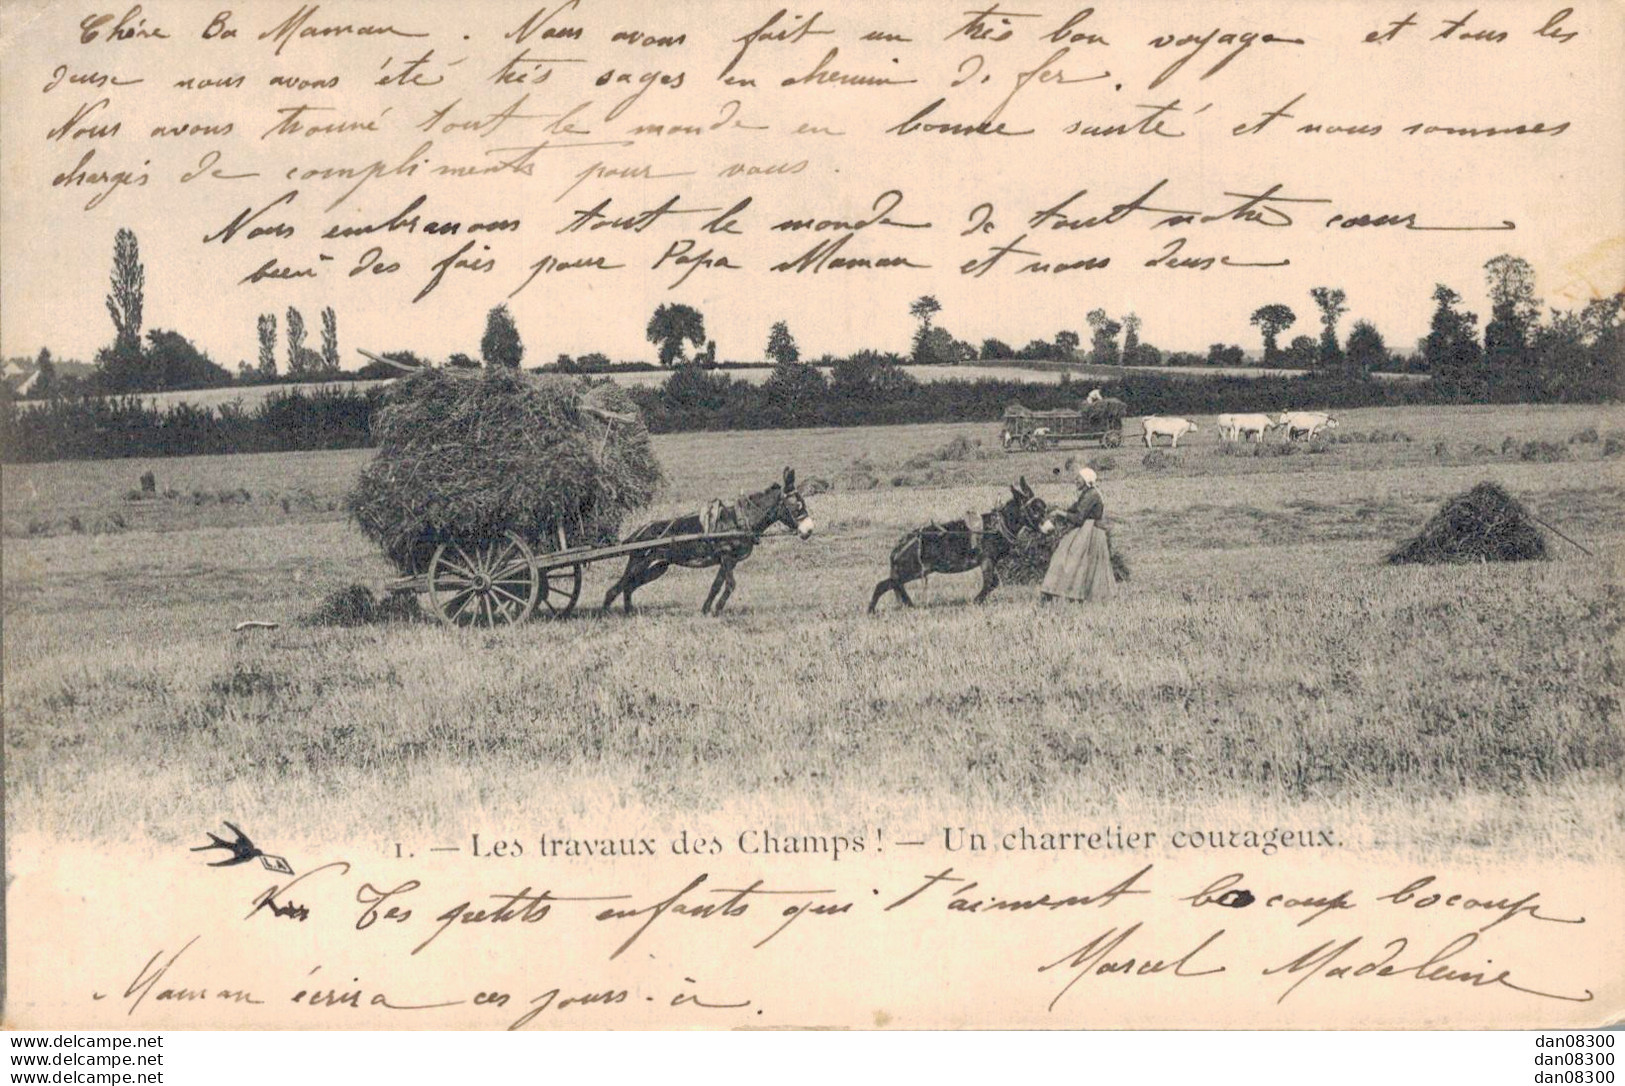 Chère Bo Maman. Nous avons fait un très bon voyage et tous les
deux nous avons été très sages en chemin de fer.
Nous avons trouvé tout le monde en bonne santé et nous sommes
chargés de compliments pour vous.
Nous embrassons tout le monde de tout notre cœur
bien des fois pour Papa Maman et nous deux
1. — Les travaux des Champs ! — Un charretier courageux.
LA
Tes petits enfants qui t'aiment bocoup bocoup
Marcel Madeleine
Maman écrira ces jours-ci.
www.delcampe.net dan08300
www.delcampe.net dan08300
www.delcampe.net dan08300